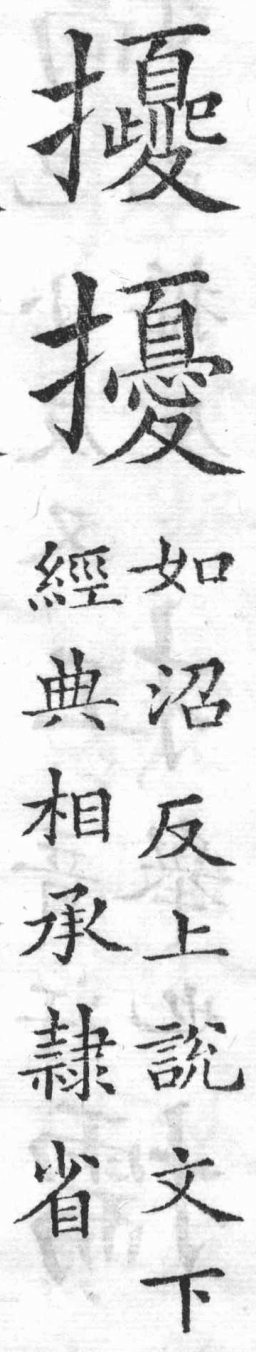 𢺕擾
如沼反上說文下
經典相承隸省